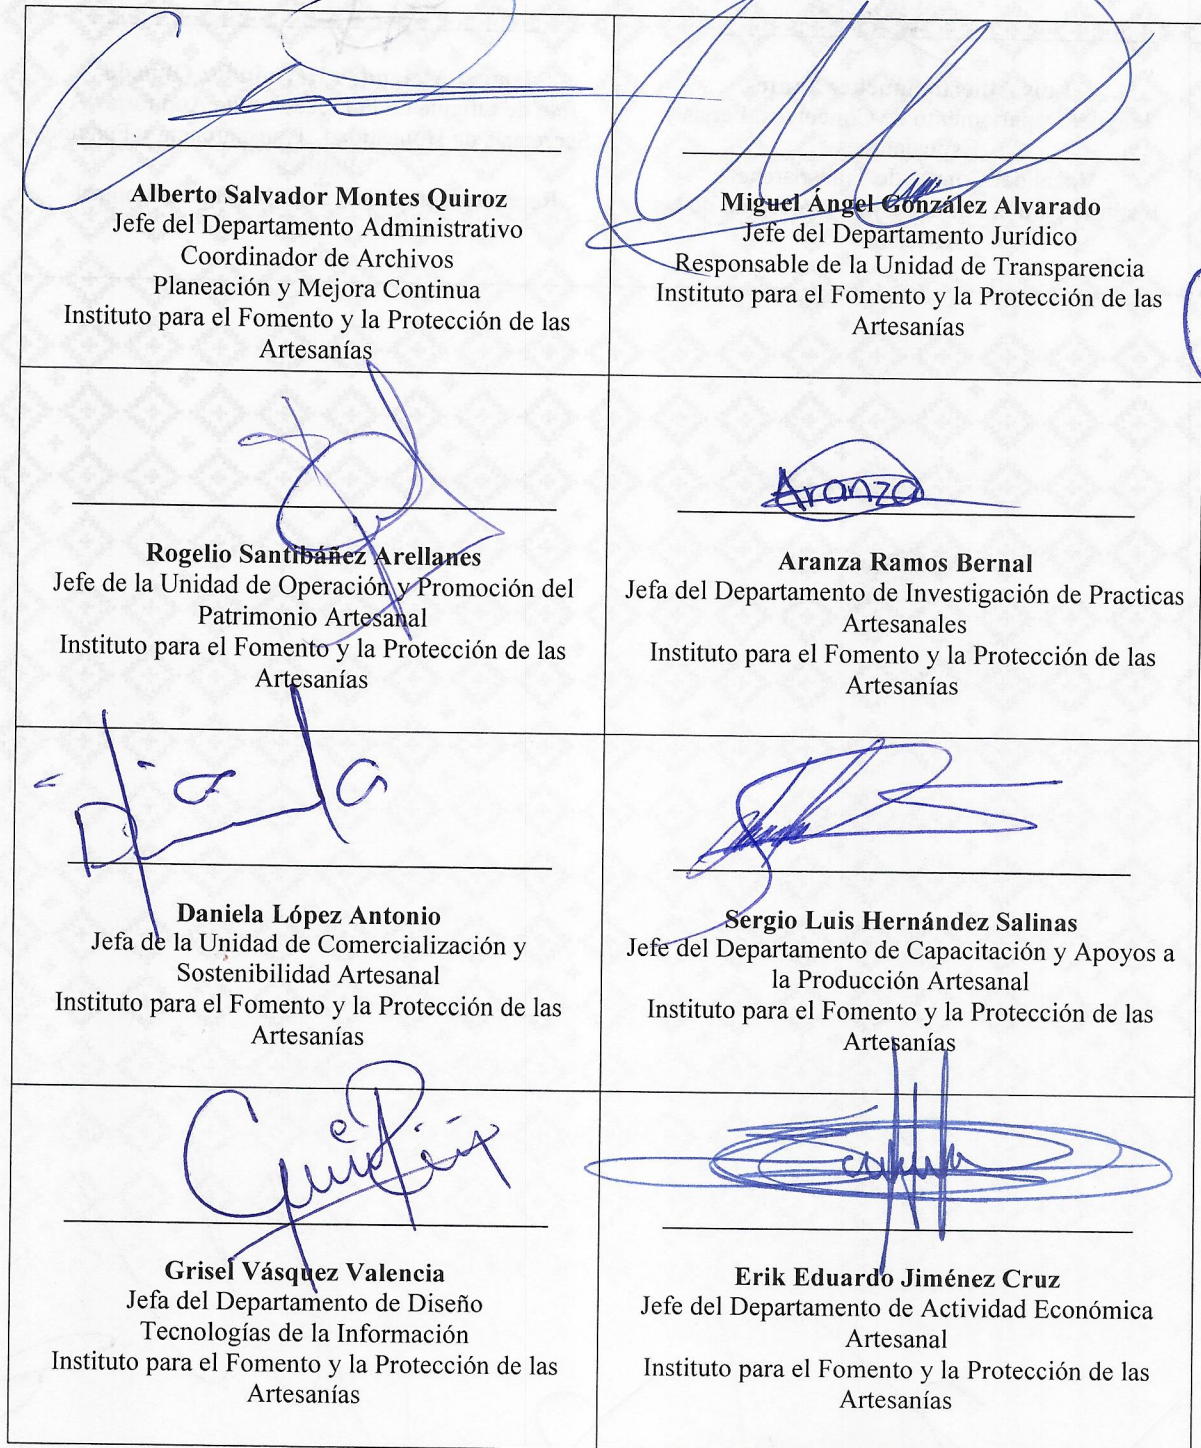 Alberto Salvador Montes Quiroz
Jefe del Departamento Administrativo
Coordinador de Archivos
Planeación y Mejora Continua
Instituto para el Fomento y la Protección de las
Artesanías
Miguel Ángel González Alvarado
Jefe del Departamento Jurídico
Responsable de la Unidad de Transparencia
Instituto para el Fomento y la Protección de las
Artesanías
Rogelio Santibáñez Arellanes
Jefe de la Unidad de Operación y Promoción del
Patrimonio Artesanal
Instituto para el Fomento y la Protección de las
Artesanías
Aranza
Aranza Ramos Bernal
Jefa del Departamento de Investigación de Practicas
Artesanales
Instituto para el Fomento y la Protección de las
Artesanías
Daniela López Antonio
Jefa de la Unidad de Comercialización y
Sostenibilidad Artesanal
Instituto para el Fomento y la Protección de las
Artesanías
Sergio Luis Hernández Salinas
Jefe del Departamento de Capacitación y Apoyos a
la Producción Artesanal
Instituto para el Fomento y la Protección de las
Artesanías
Grisel Vásquez Valencia
Jefa del Departamento de Diseño
Tecnologías de la Información
Instituto para el Fomento y la Protección de las
Artesanías
Erik Eduardo Jiménez Cruz
Jefe del Departamento de Actividad Económica
Artesanal
Instituto para el Fomento y la Protección de las
Artesanías